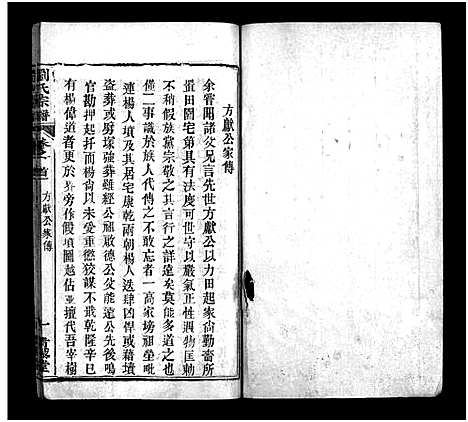 方獻公家傳
余嘗聞諸父兄言先世方獻公以力田起家尙勤嗇所
置田園宅第具有法度可世守以嚴氣正性遇物匡勅
不稍假族黨宗敬之其言行之詳遠矣莫能多道之也
僅二事識於族人代傳之不敢忘者一高家塝祖塋毗
連楊人墳及其居宅康乾兩朝楊人迭肆凶悍或藉墳
盜葬或厨塚強葬雖經公祖啟德公父能達公先後鳴
官勘押起扦而楊尙以未受重懲狡謀不戢乾隆辛巳
有楊偉道者更於界旁作假墳圖越佔並擅代吾宰樹
劉氏宗譜
卷之首
方獻公家傳
一